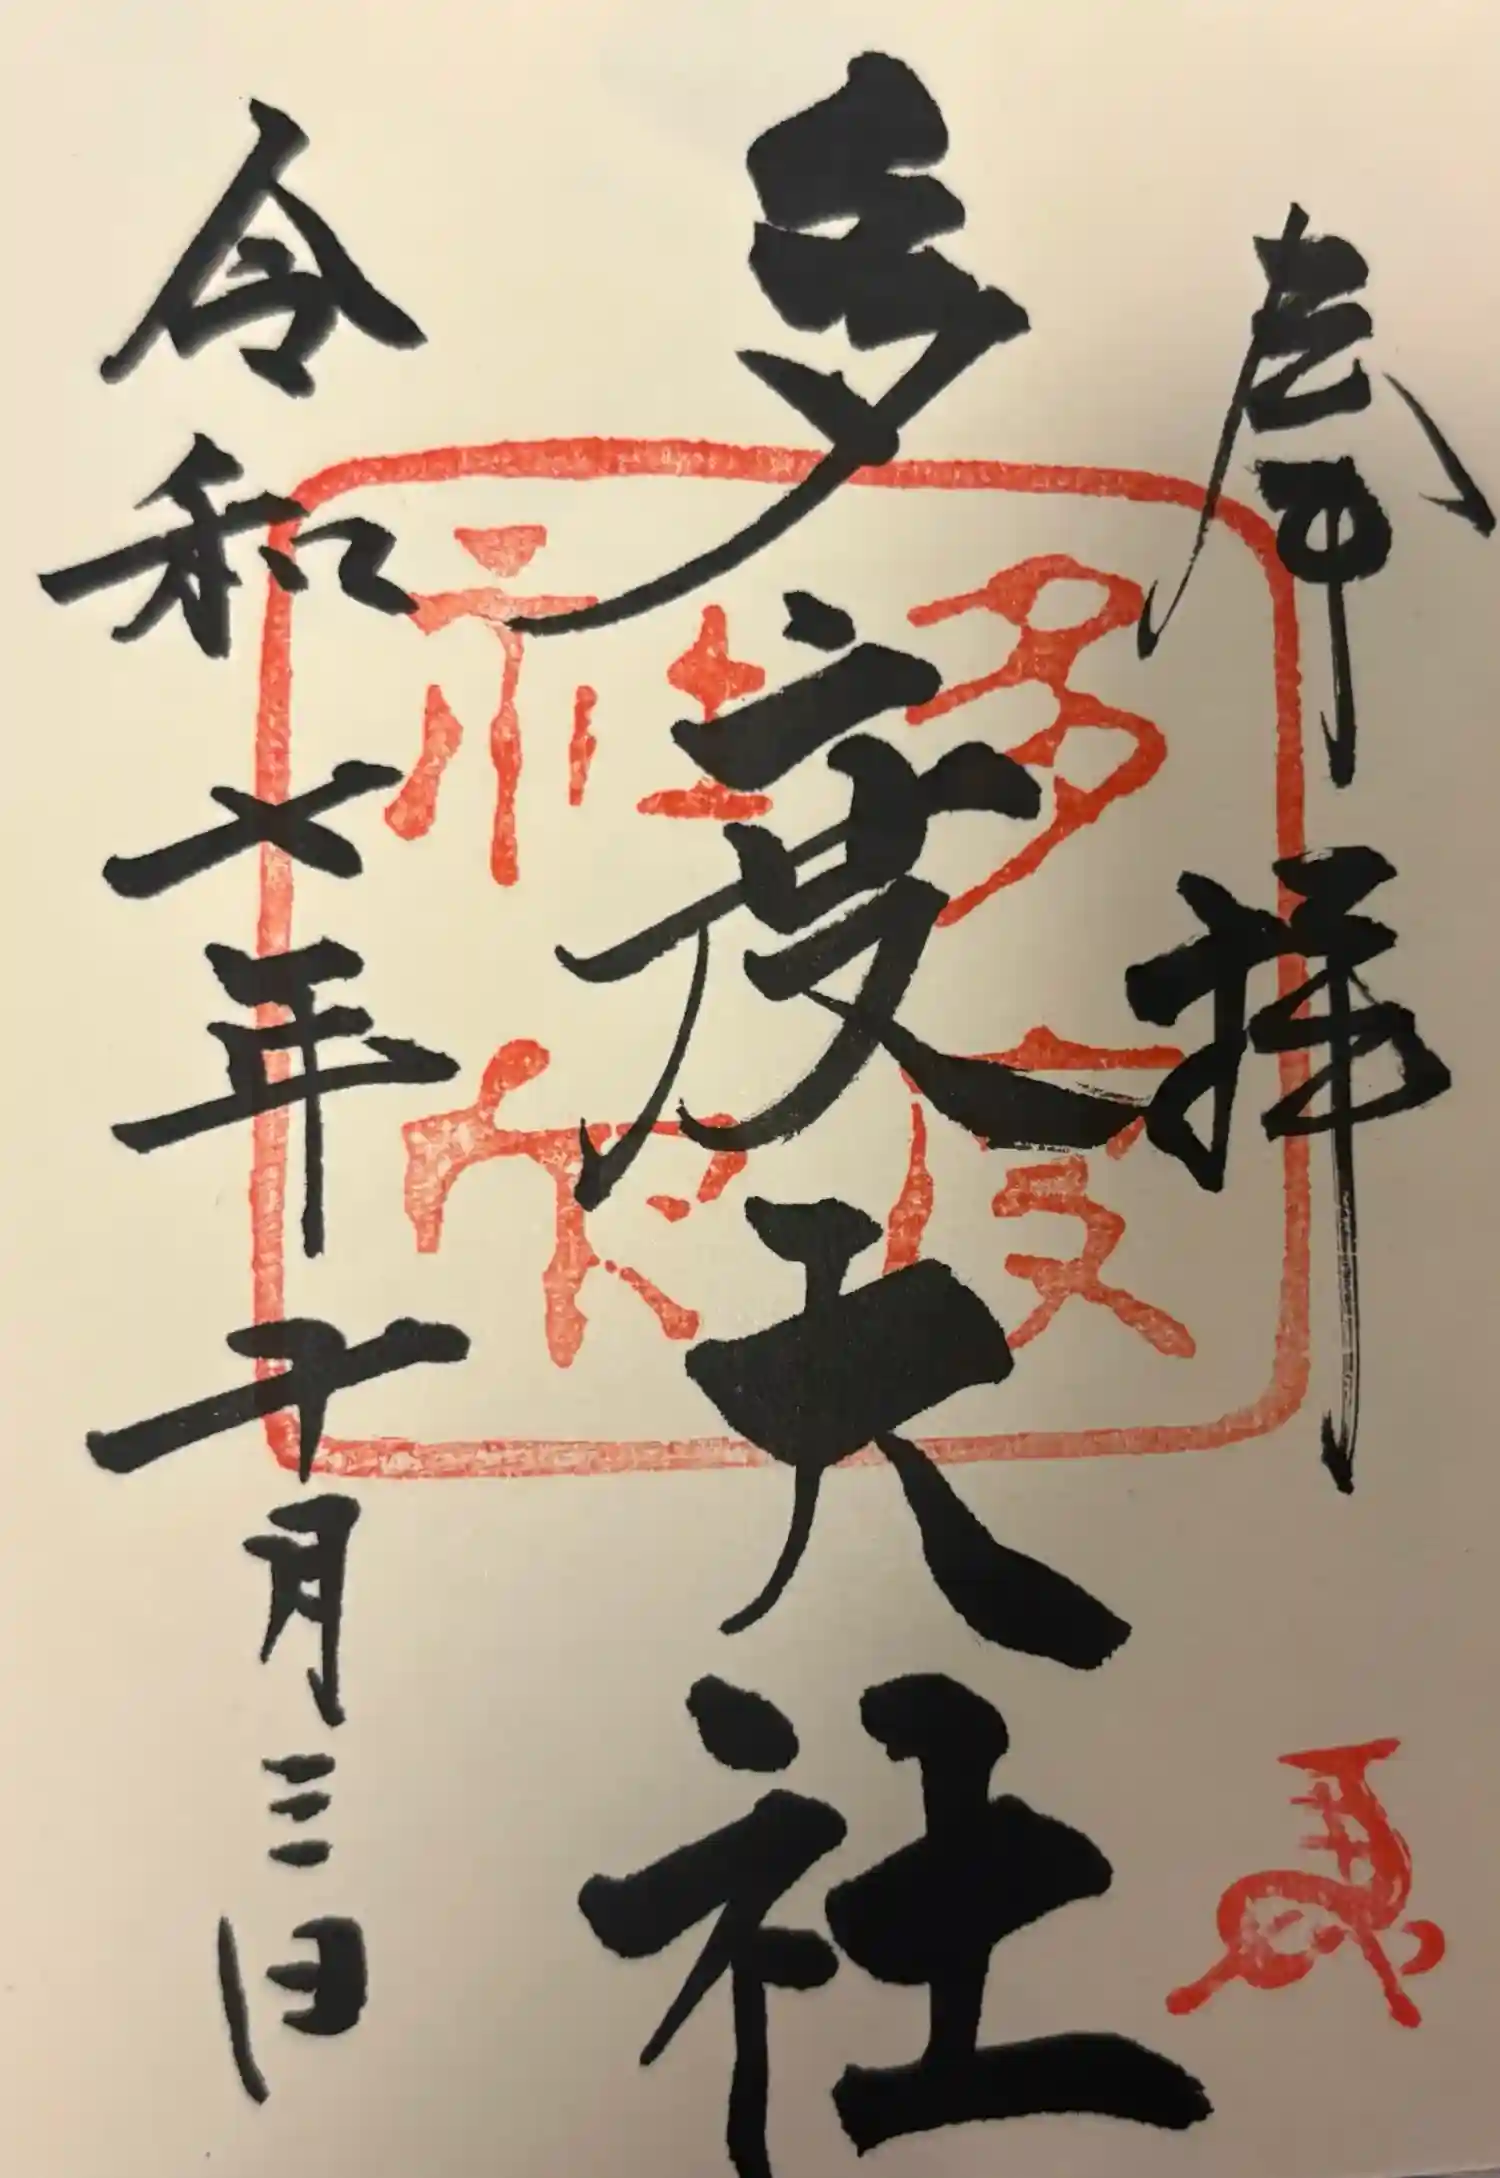 奉拝
多度大社
令和七年十月三日
多度
社印